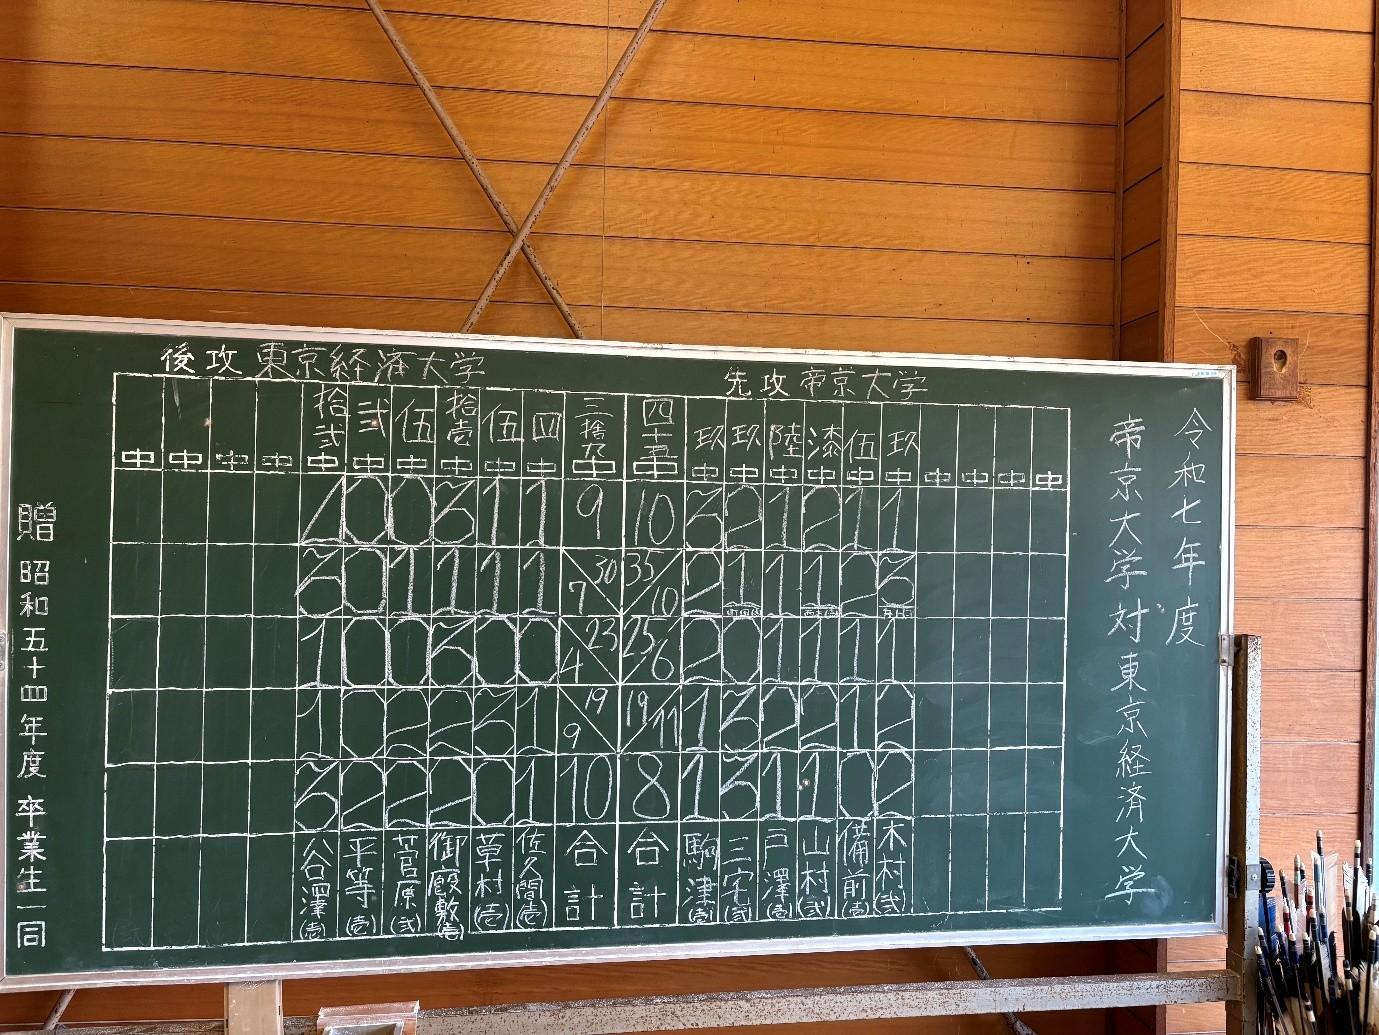 令和七年度
帝京大学対東京経済大学
後攻 東京経済大学
先攻 帝京大学
拾弐 弐 伍 拾壱 伍 四 三拾九 四十五 玖 玖 陸 漆 伍 玖
中 中 中 中 中 中 中 中 中 中 中 中 中 中 中 中 中 中 中 中 中 中
4 0 0 3 1 1 9 10 3 2 1 2 1 1
3 0 1 1 1 1 7 30 35 10 2 1 1 1 2 3
1 0 0 3 0 0 4 23 25 6 2 0 1 1 1 1
1 0 2 2 3 1 9 19 19 11 1 3 2 2 1 2
3 2 2 2 0 1 10 8 1 3 1 1 0 2
谷澤(壱) 平等(壱) 菅原(弐) 御殿敷(壱) 草村(壱) 佐久間(壱) 合計 合計 駒津(壱) 三字(弐) 戸澤(壱) 山村(弐) 備前(壱) 木村(弐)
贈 昭和五十四年度 卒業生一同